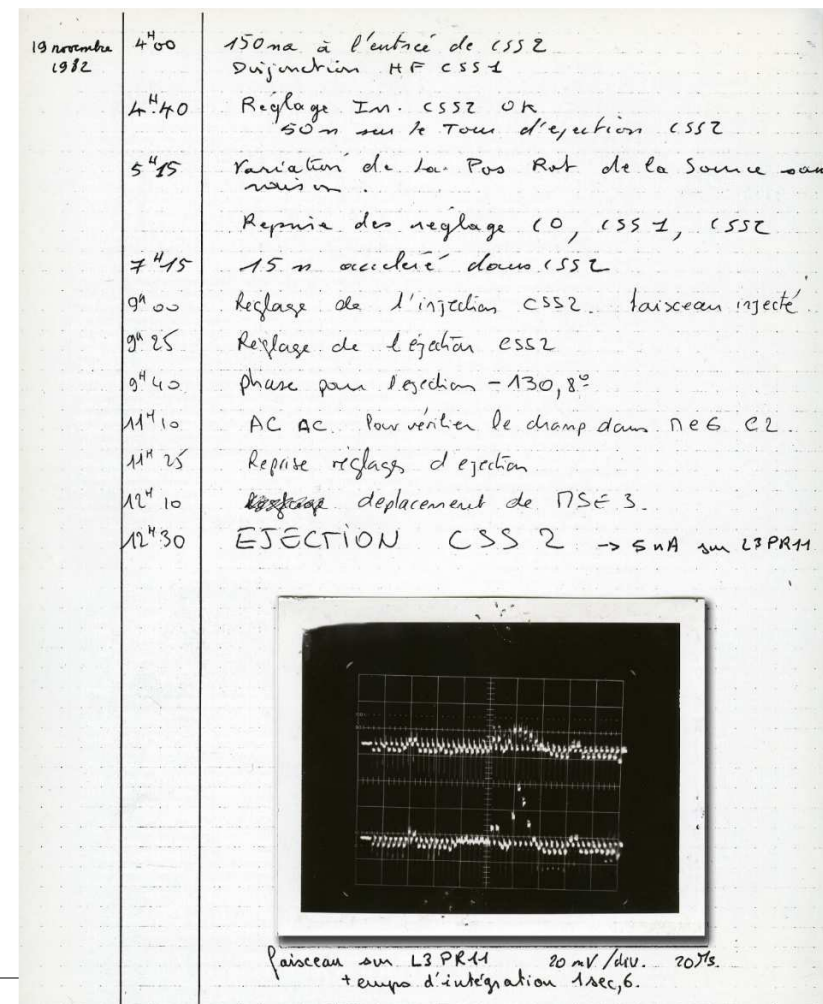 19 novembre 1982
4H00 150na à l'entrée de CSS2
Disjonction HF CSS1
4H40 Réglage In. CSS2 OK
50n sur le Tour d'ejection CSS2
5H15 Variation de la Pos Rot de la Source sans
raison.
Reprise des reglage CO, CSS1, CSS2
7H15 15 n acceleré dans CSS2
9H00 Reglage de l'injection CSS2. faisceau injecté.
9H25 Reglage de l'éjection CSS2
9H40 phase pour l'ejection - 130,8°
11H10 AC AC. Pour vérifier le champ dans Me6 C2.
11H25 Reprise réglages d'ejection
12H10 deplacement de MSE 3.
12H30 EJECTION CSS 2 -> 5nA sur L3PR11
faisceau sur L3PR11 20 mV/div.
temps d'intégration 1sec,6.